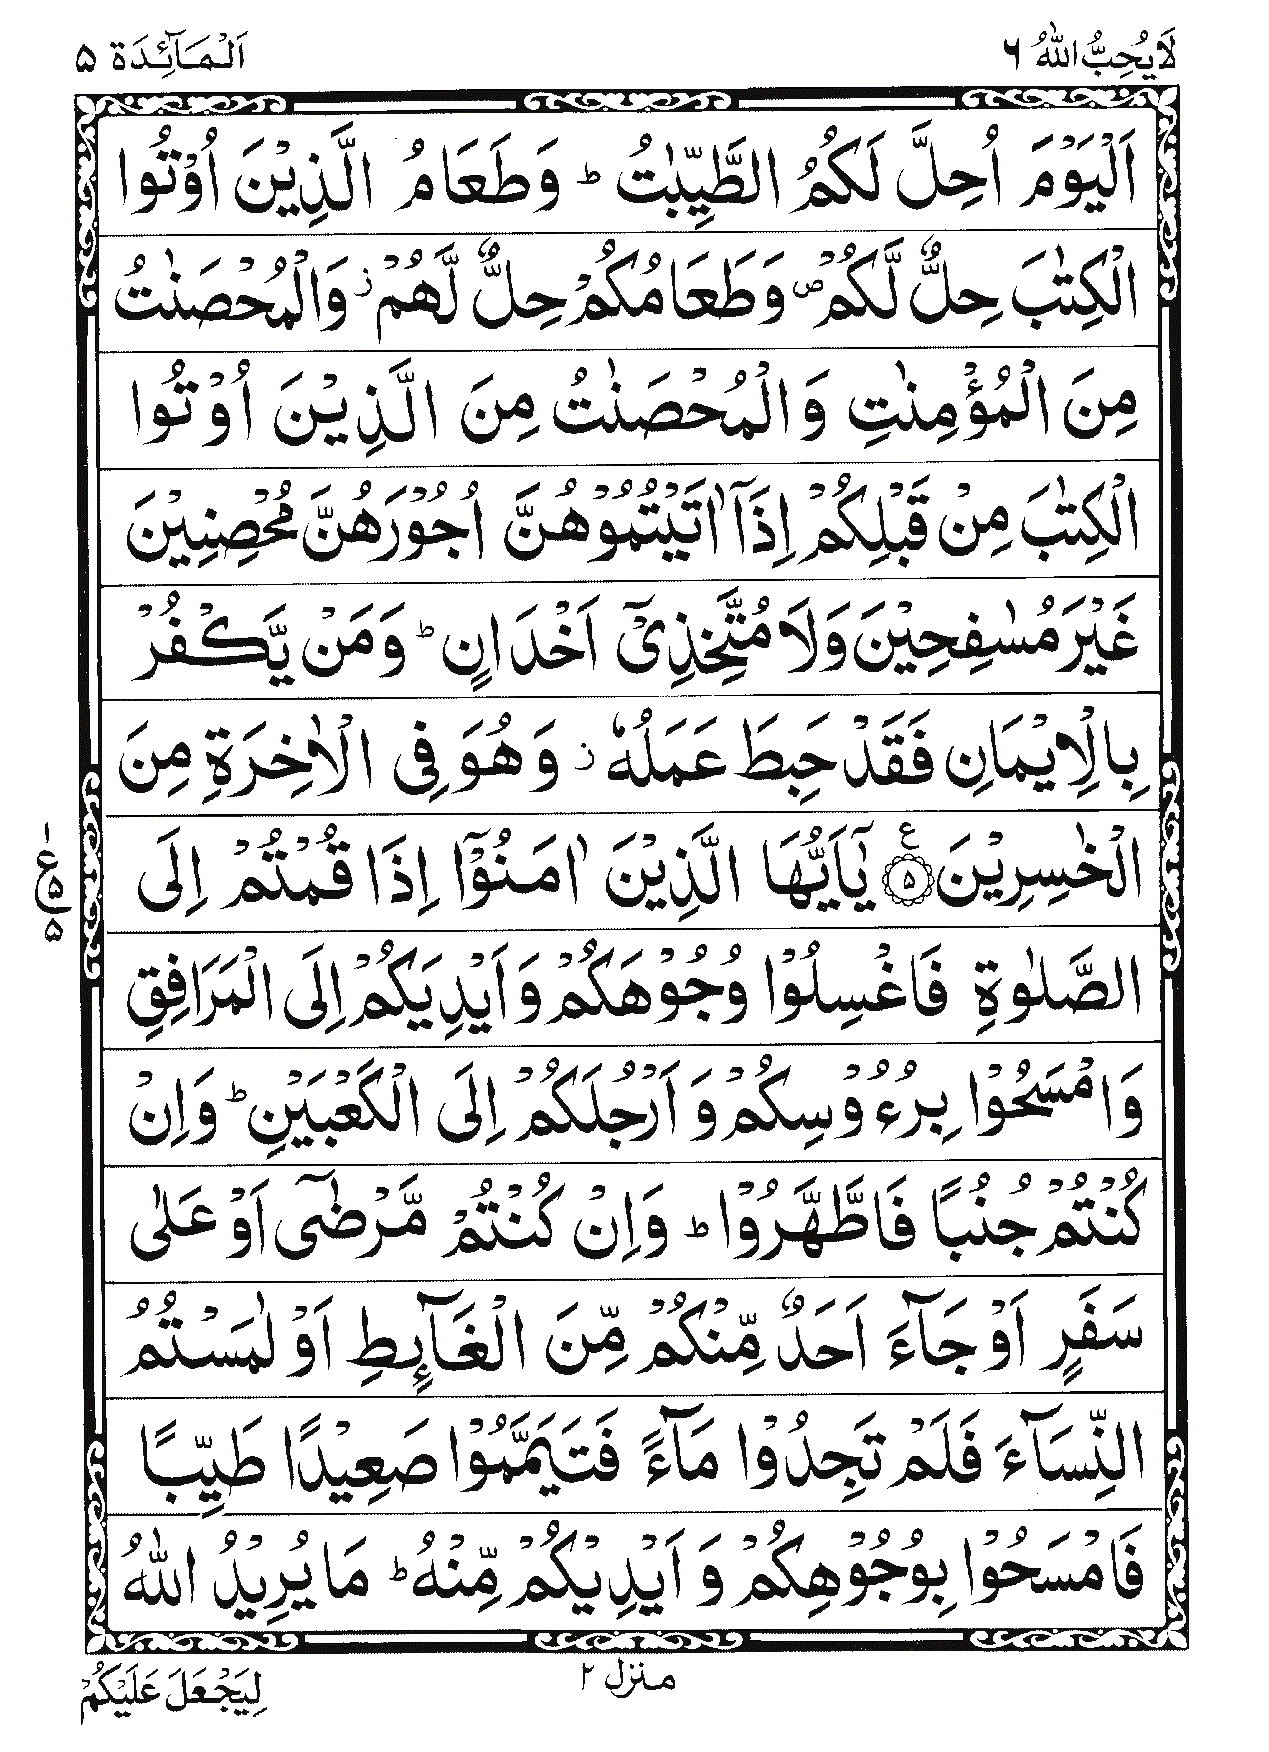 لَا يُحِبُّ اللهُ ٦
اَلْمَآئِدَة ۵
اَلْيَوْمَ اُحِلَّ لَكُمُ الطَّيِّبٰتُ ؕ وَطَعَامُ الَّذِيْنَ اُوْتُوا
الْكِتٰبَ حِلٌّ لَّكُمْ ۪ وَطَعَامُكُمْ حِلٌّ لَّهُمْ ؗ وَالْمُحْصَنٰتُ
مِنَ الْمُؤْمِنٰتِ وَالْمُحْصَنٰتُ مِنَ الَّذِيْنَ اُوْتُوا
الْكِتٰبَ مِنْ قَبْلِكُمْ اِذَاۤ اٰتَيْتُمُوْهُنَّ اُجُوْرَهُنَّ مُحْصِنِيْنَ
غَيْرَ مُسٰفِحِيْنَ وَلَا مُتَّخِذِيْۤ اَخْدَانٍ ؕ وَمَنْ يَّكْفُرْ
بِالْاِيْمَانِ فَقَدْ حَبِطَ عَمَلُهٗ ؗ وَهُوَ فِي الْاٰخِرَةِ مِنَ
الْخٰسِرِيْنَ ۵ ع يٰۤاَيُّهَا الَّذِيْنَ اٰمَنُوْۤا اِذَا قُمْتُمْ اِلَى
۱ ع ۵ ۵
الصَّلٰوةِ فَاغْسِلُوْا وُجُوْهَكُمْ وَاَيْدِيَكُمْ اِلَى الْمَرَافِقِ
وَامْسَحُوْا بِرُءُوْسِكُمْ وَاَرْجُلَكُمْ اِلَى الْكَعْبَيْنِ ؕ وَاِنْ
كُنْتُمْ جُنُبًا فَاطَّهَّرُوْا ؕ وَاِنْ كُنْتُمْ مَّرْضٰۤى اَوْ عَلٰى
سَفَرٍ اَوْ جَآءَ اَحَدٌ مِّنْكُمْ مِّنَ الْغَآئِطِ اَوْ لٰمَسْتُمُ
النِّسَآءَ فَلَمْ تَجِدُوْا مَآءً فَتَيَمَّمُوْا صَعِيْدًا طَيِّبًا
فَامْسَحُوْا بِوُجُوْهِكُمْ وَاَيْدِيْكُمْ مِّنْهُ ؕ مَا يُرِيْدُ اللهُ
منزل ۲
لِيَجْعَلَ عَلَيْكُمْ